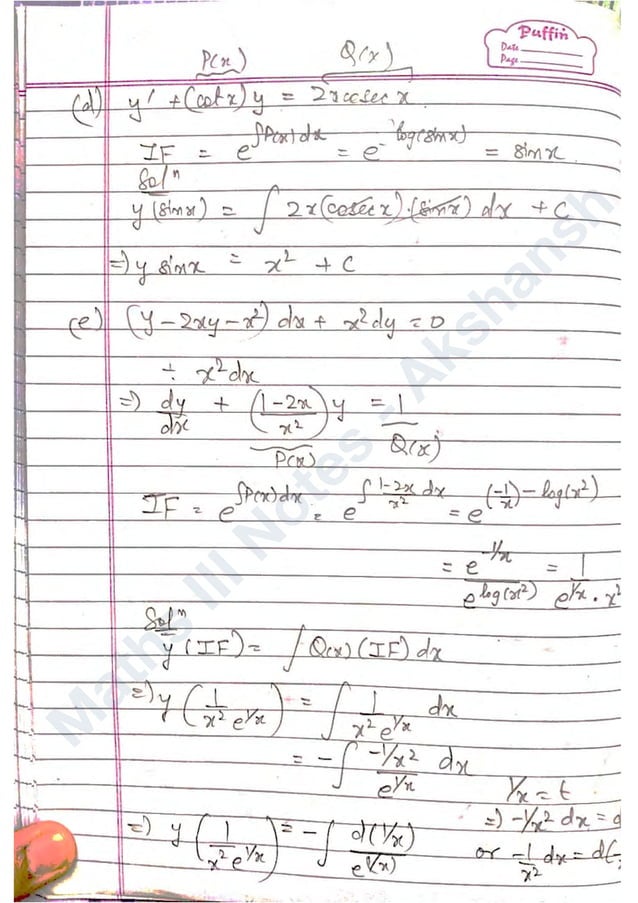 Puffin
Date
Page
P(x) Q(x)
(d) y' + (cot x) y = 2x cosec x.
IF = e^∫P(x)dx = e^log(sinx) = sinx
Solⁿ
y(sinx) = ∫ 2x(cosec x).(sinx) dx + C
=) y sinx = x² + C
(e) (y - 2xy - x²) dx + x² dy = 0
÷ x²dx
=) dy/dx + ((1-2x)/x²) y = 1
P(x) Q(x)
IF = e^∫P(x)dx = e^∫(1-2x)/x² dx = e^(-1/x) - log(x²)
= e^-1/x / e^log(x²) = 1 / e^1/x . x²
Solⁿ
y(IF) = ∫ Q(x) (IF) dx
=) y (1/(x² e^1/x)) = ∫ 1/(x² e^1/x) dx
= - ∫ (-1/x²)/(e^1/x) dx
1/x = t
=) -1/x² dx = d
=) y (1/(x² e^1/x)) = - ∫ d(1/x)/e^(1/x)
or -1/x² dx = d(
Maths III Notes - Akshansh